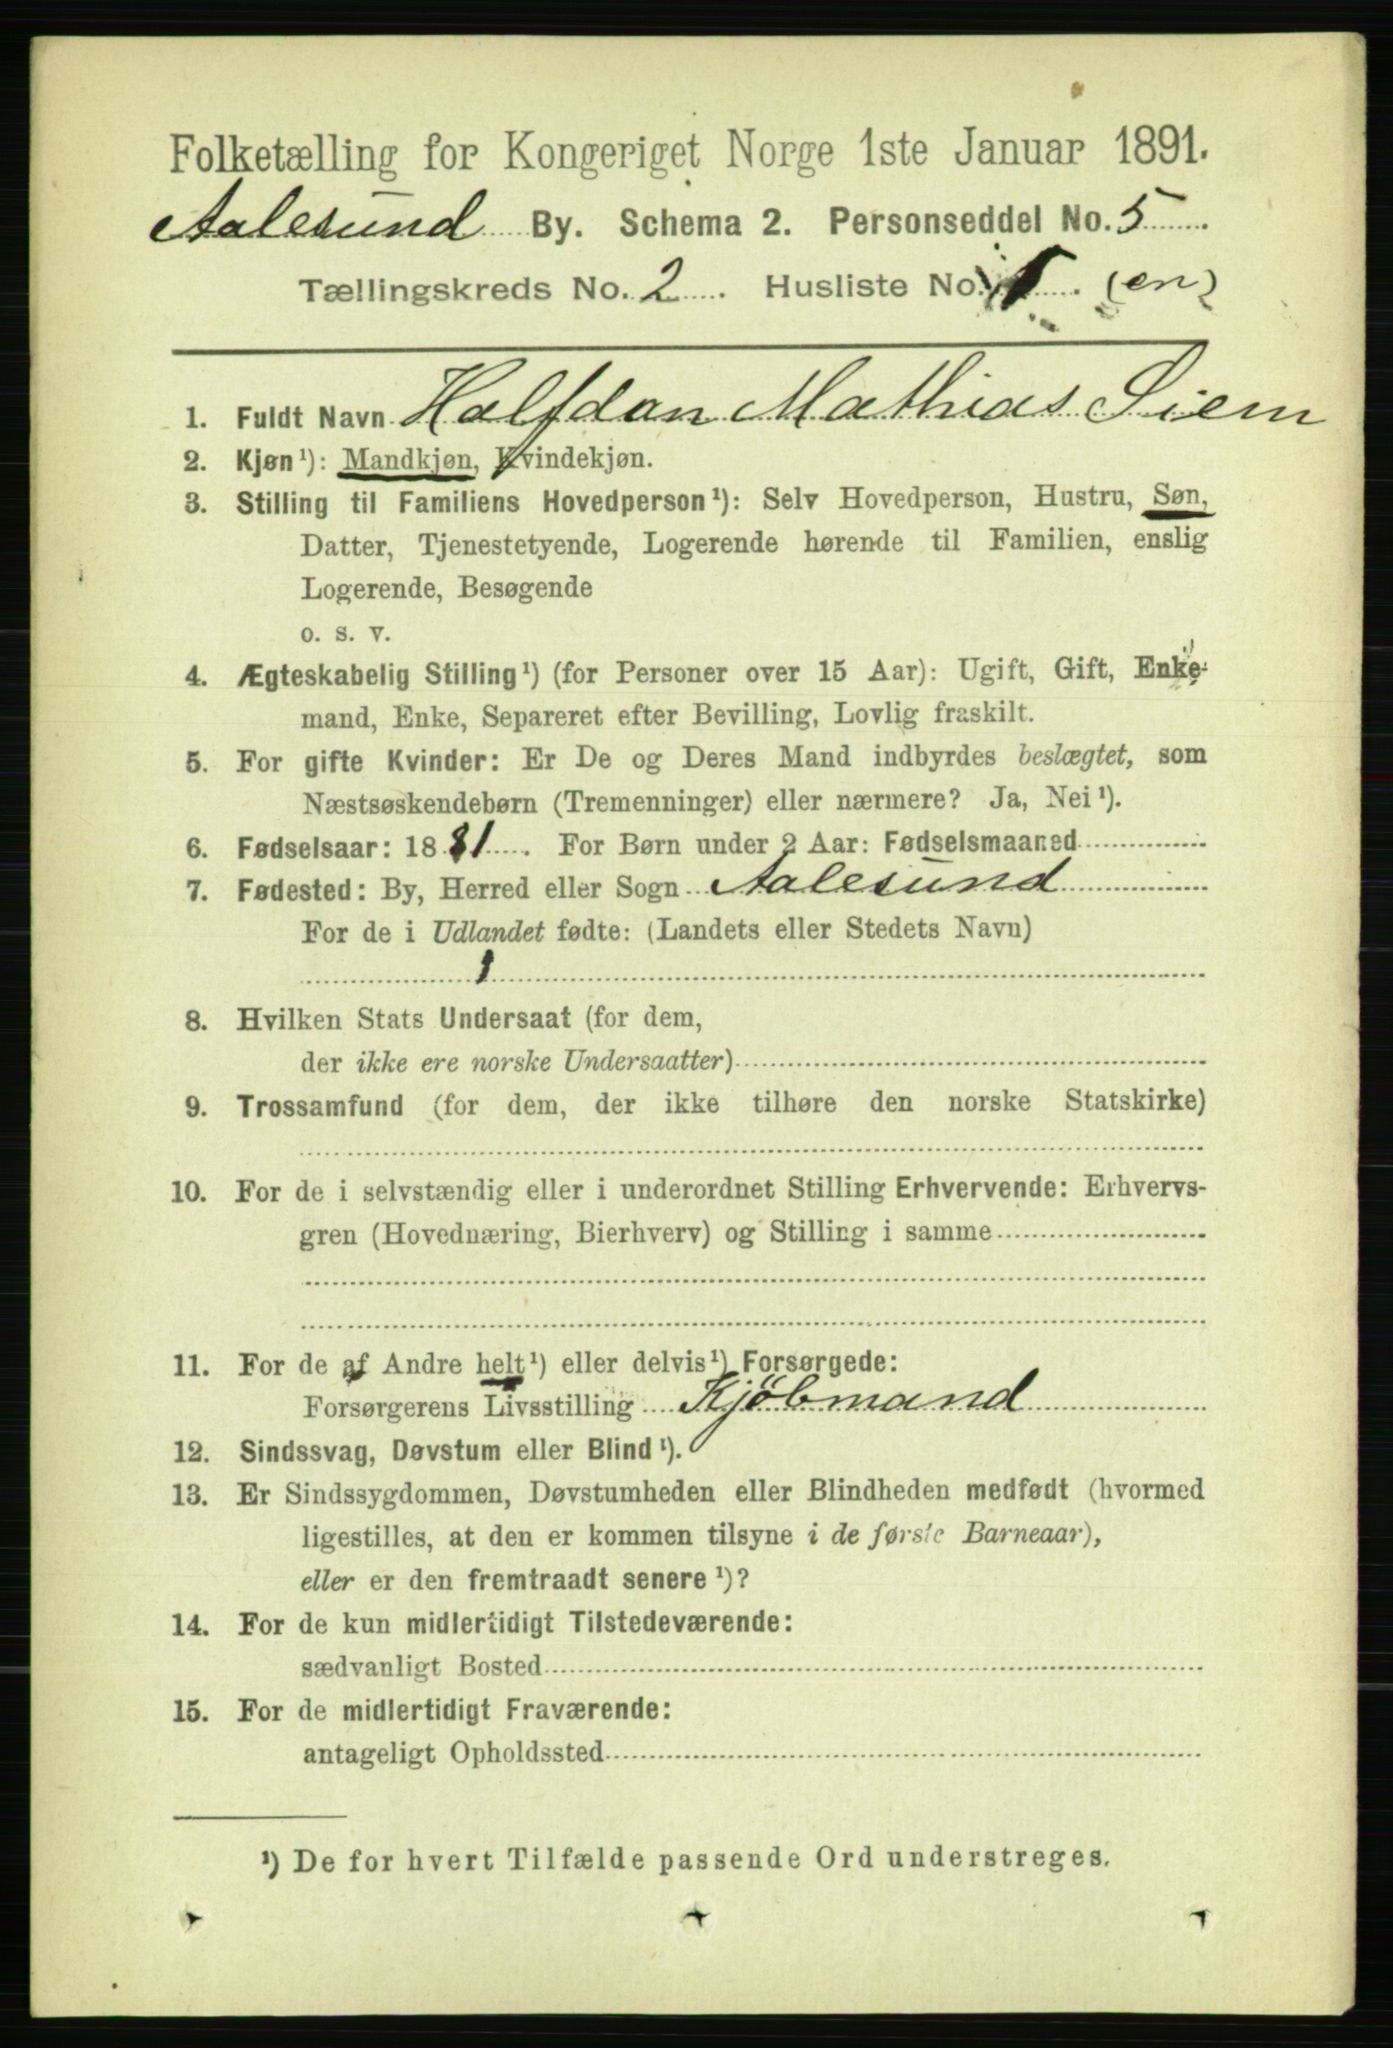 Folketælling for Kongeriget Norge 1ste Januar 1891.
Aalesund By. Schema 2. Personseddel No. 5
Tællingskreds No. 2 . Husliste No. 1 . (en)
1. Fuldt Navn Halfdan Mathias Siem
2. Kjøn¹): Mandkjøn, Kvindekjøn.
3. Stilling til Familiens Hovedperson¹): Selv Hovedperson, Hustru, Søn,
Datter, Tjenestetyende, Logerende hørende til Familien, enslig
Logerende, Besøgende
o. s. v.
4. Ægteskabelig Stilling¹) (for Personer over 15 Aar): Ugift, Gift, Enke-
mand, Enke, Separeret efter Bevilling, Lovlig fraskilt.
5. For gifte Kvinder: Er De og Deres Mand indbyrdes beslægtet, som
Næstsøskendebørn (Tremenninger) eller nærmere? Ja, Nei¹).
6. Fødselsaar: 1881 . For Børn under 2 Aar: Fødselsmaaned
7. Fødested: By, Herred eller Sogn Aalesund
For de i Udlandet fødte: (Landets eller Stedets Navn)
8. Hvilken Stats Undersaat (for dem,
der ikke ere norske Undersaatter)
9. Trossamfund (for dem, der ikke tilhøre den norske Statskirke)
10. For de i selvstændig eller i underordnet Stilling Erhvervende: Erhvervs-
gren (Hovednæring, Bierhverv) og Stilling i samme
11. For de af Andre helt¹) eller delvis¹) Forsørgede:
Forsørgerens Livsstilling Kjöbmand
12. Sindssvag, Døvstum eller Blind¹).
13. Er Sindssygdommen, Døvstumheden eller Blindheden medfødt (hvormed
ligestilles, at den er kommen tilsyne i de første Barneaar),
eller er den fremtraadt senere¹)?
14. For de kun midlertidigt Tilstedeværende:
sædvanligt Bosted
15. For de midlertidigt Fraværende:
antageligt Opholdssted
¹) De for hvert Tilfælde passende Ord understreges.